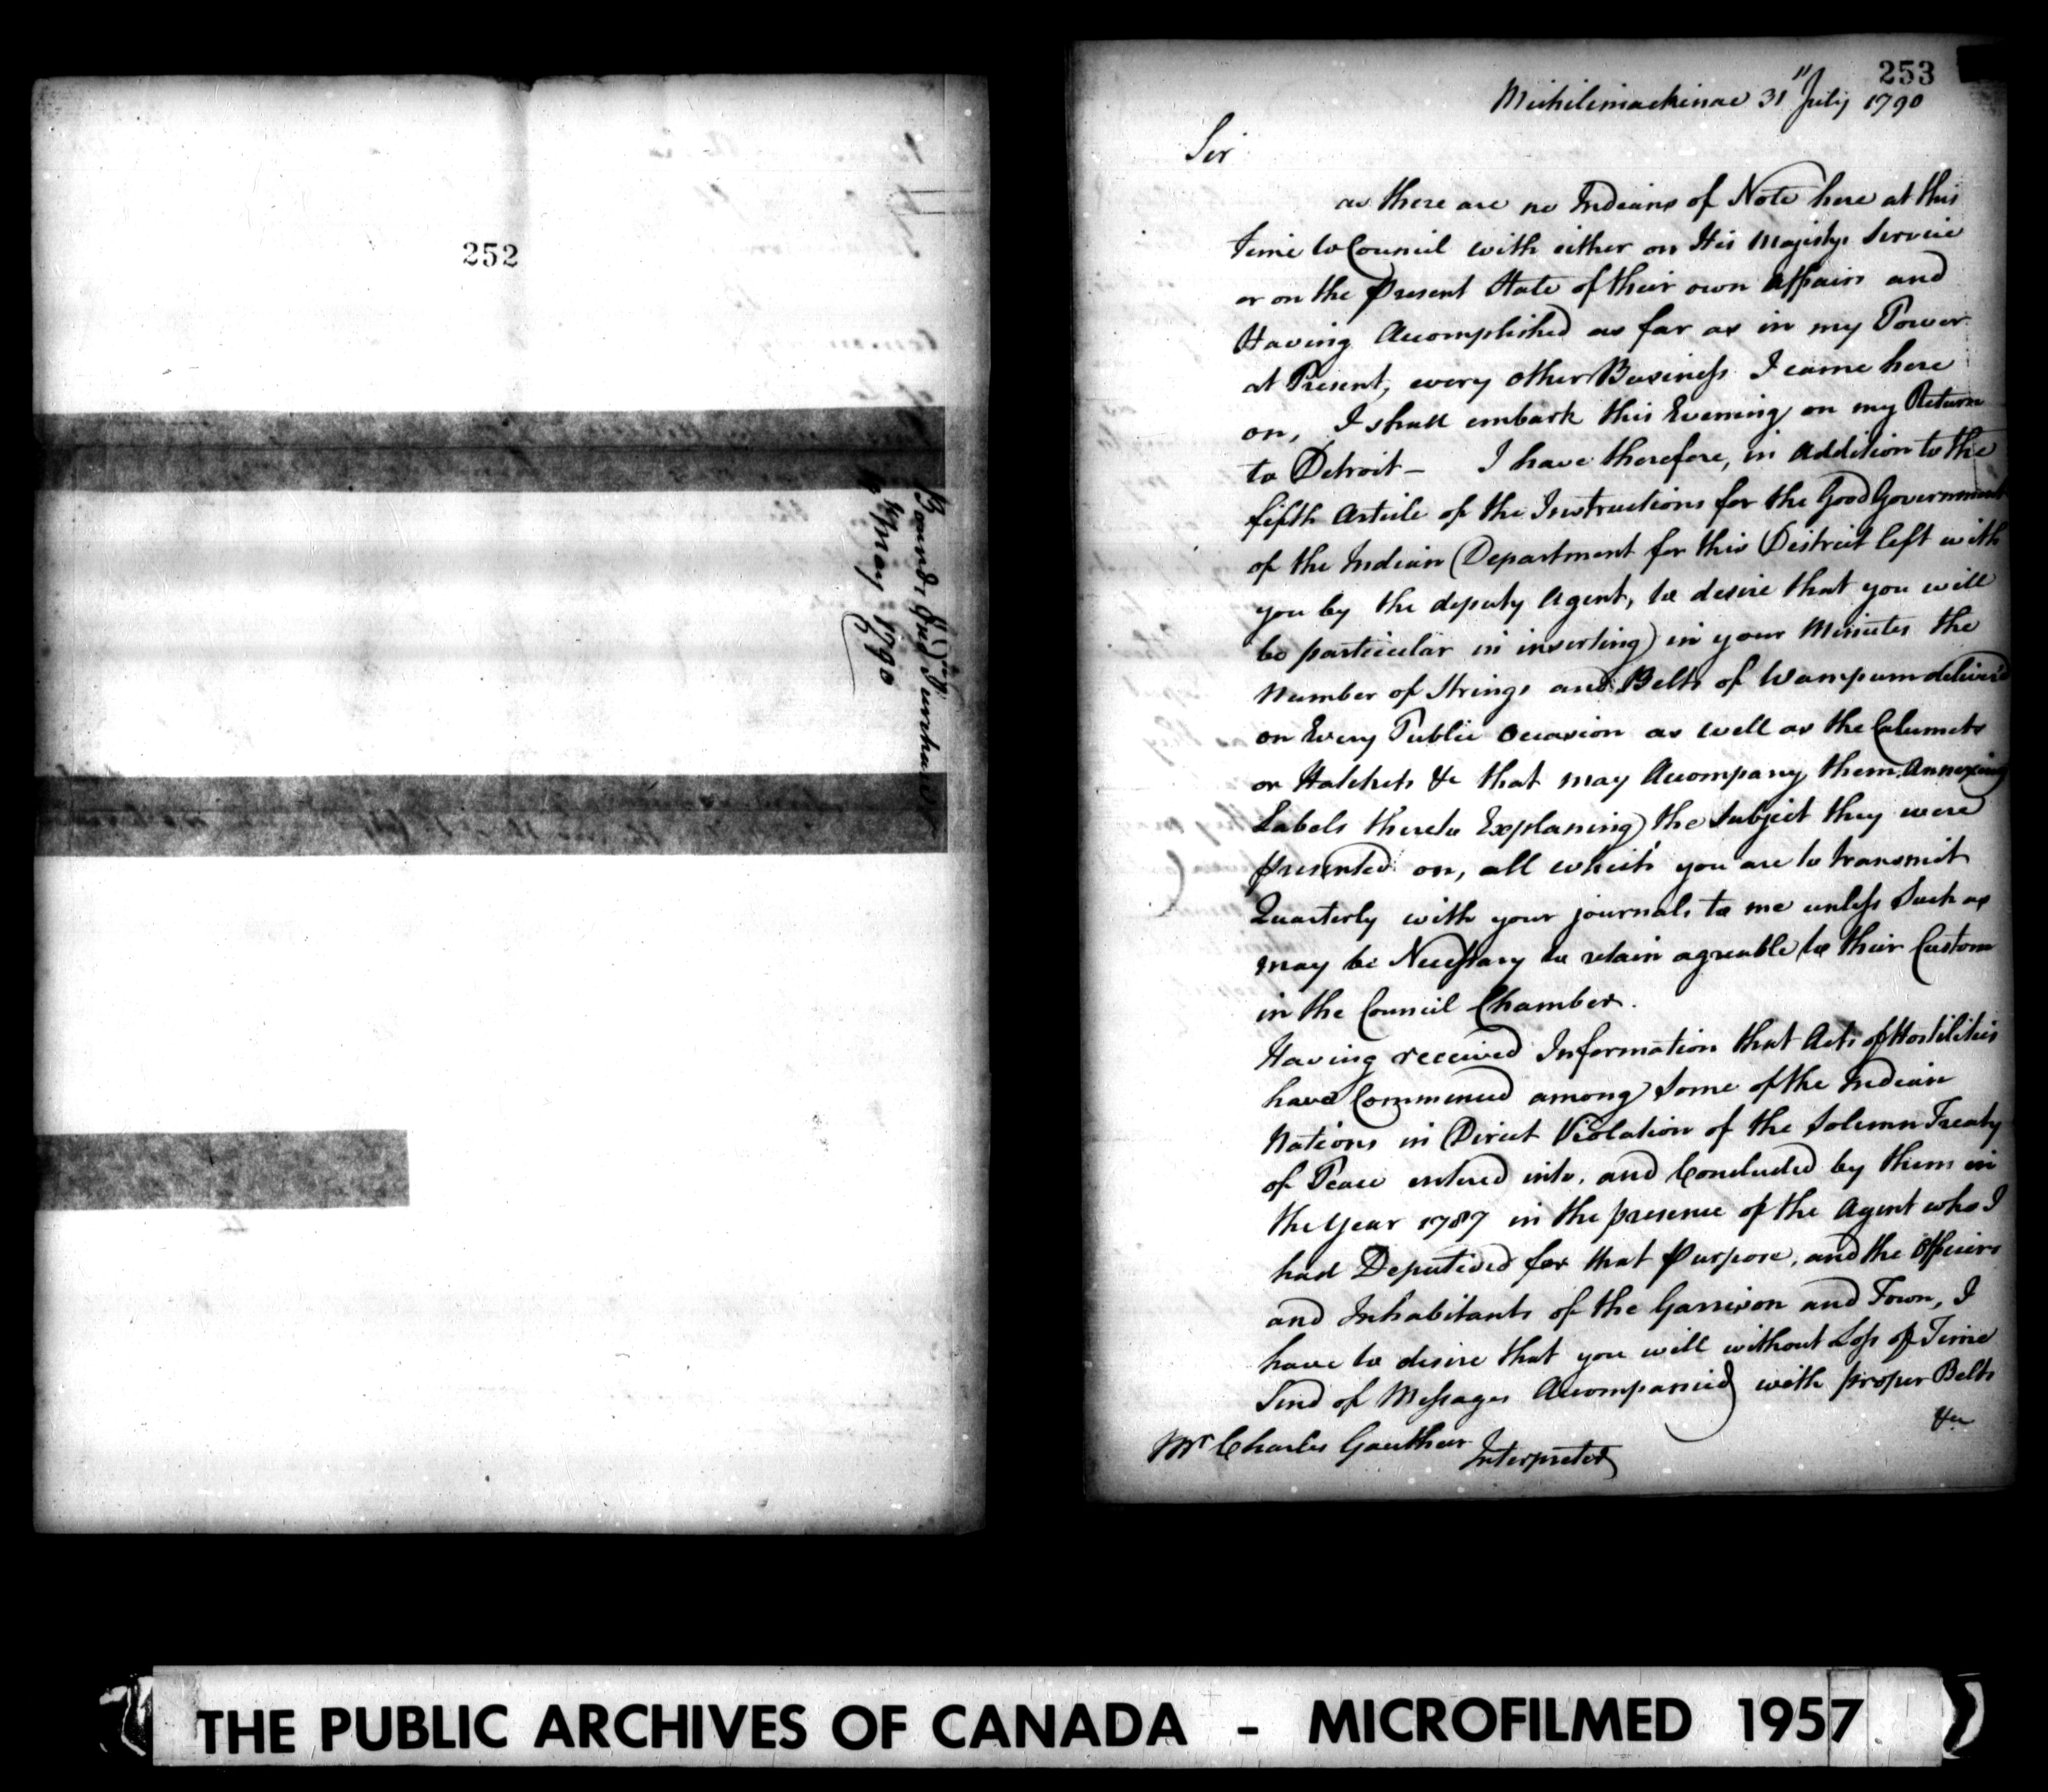 252
Bonds Ind. Purchases
May 1790
253
Michilimackinac 31" July 1790
Sir
as there are no Indians of Note here at this
Time to Council with either on His Majestys Service
or on the Present State of their own Affairs and
Having Accomplished as far as in my Power
at Present, every other Business I came here
on, I shall embark this Evening on my Return
to Detroit — I have therefore, in Addition to the
fifth Article of the Instructions for the Good Government
of the Indian Department for this District left with
you by the deputy Agent, to desire that you will
be particular in inserting in your Minutes the
Number of Strings and Belts of Wampum deliver'd
on Every Public Occasion as well as the Calumets
or Hatchets &c that may Accompany them, Annexing
Labels thereto Explaning the Subject they were
presented on, all which you are to transmit
Quarterly with your journals to me unless Such as
may be Necessary to retain agreable to their Custom
in the Council Chamber.
Having received Information that Acts of Hostilities
have Commenced among Some of the Indian
Nations in Direct Violation of the Solemn Treaty
of Peace entered into, and Concluded by them in
the Year 1787 in the presence of the Agent who I
had Deputised for that Purpose, and the Officers
and Inhabitants of the Garrison and Town, I
have to desire that you will without Loss of Time
Send of Messages Accompanied with proper Belts
&c
Mr Charles Gauthier Interpreter
THE PUBLIC ARCHIVES OF CANADA - MICROFILMED 1957